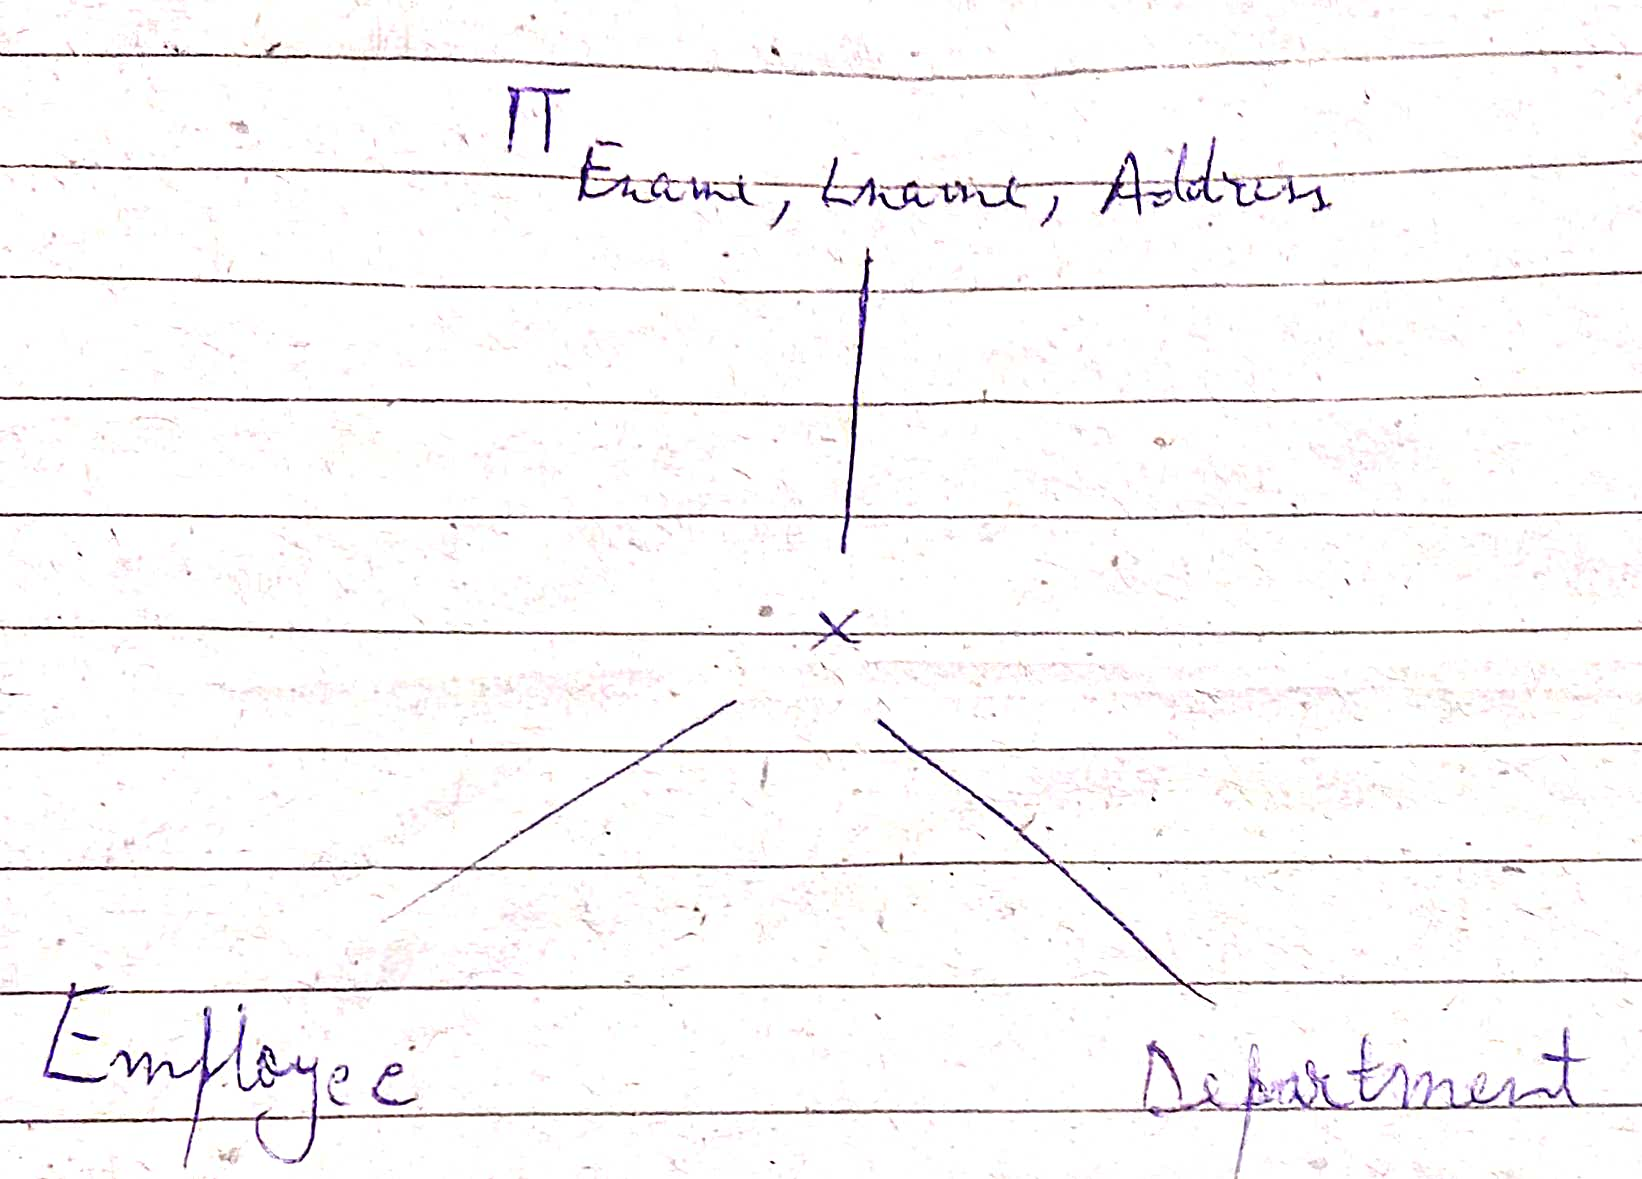 Π Ename, Lname, Address
×
Employee Department